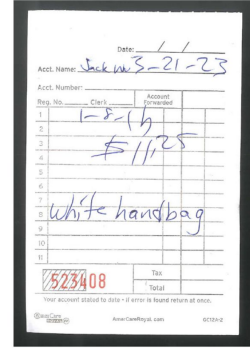 Date: / /
Acct. Name: Jack 3-21-23
Acct. Number:
Reg. No. Clerk Account Forwarded
1
2
3
4 $11,25
5
6
7
8 white handbag
9
10
11
523408
Tax
Total
Your account stated to date - if error is found return at once.
AmerCareRoyal.com GC5EA-2